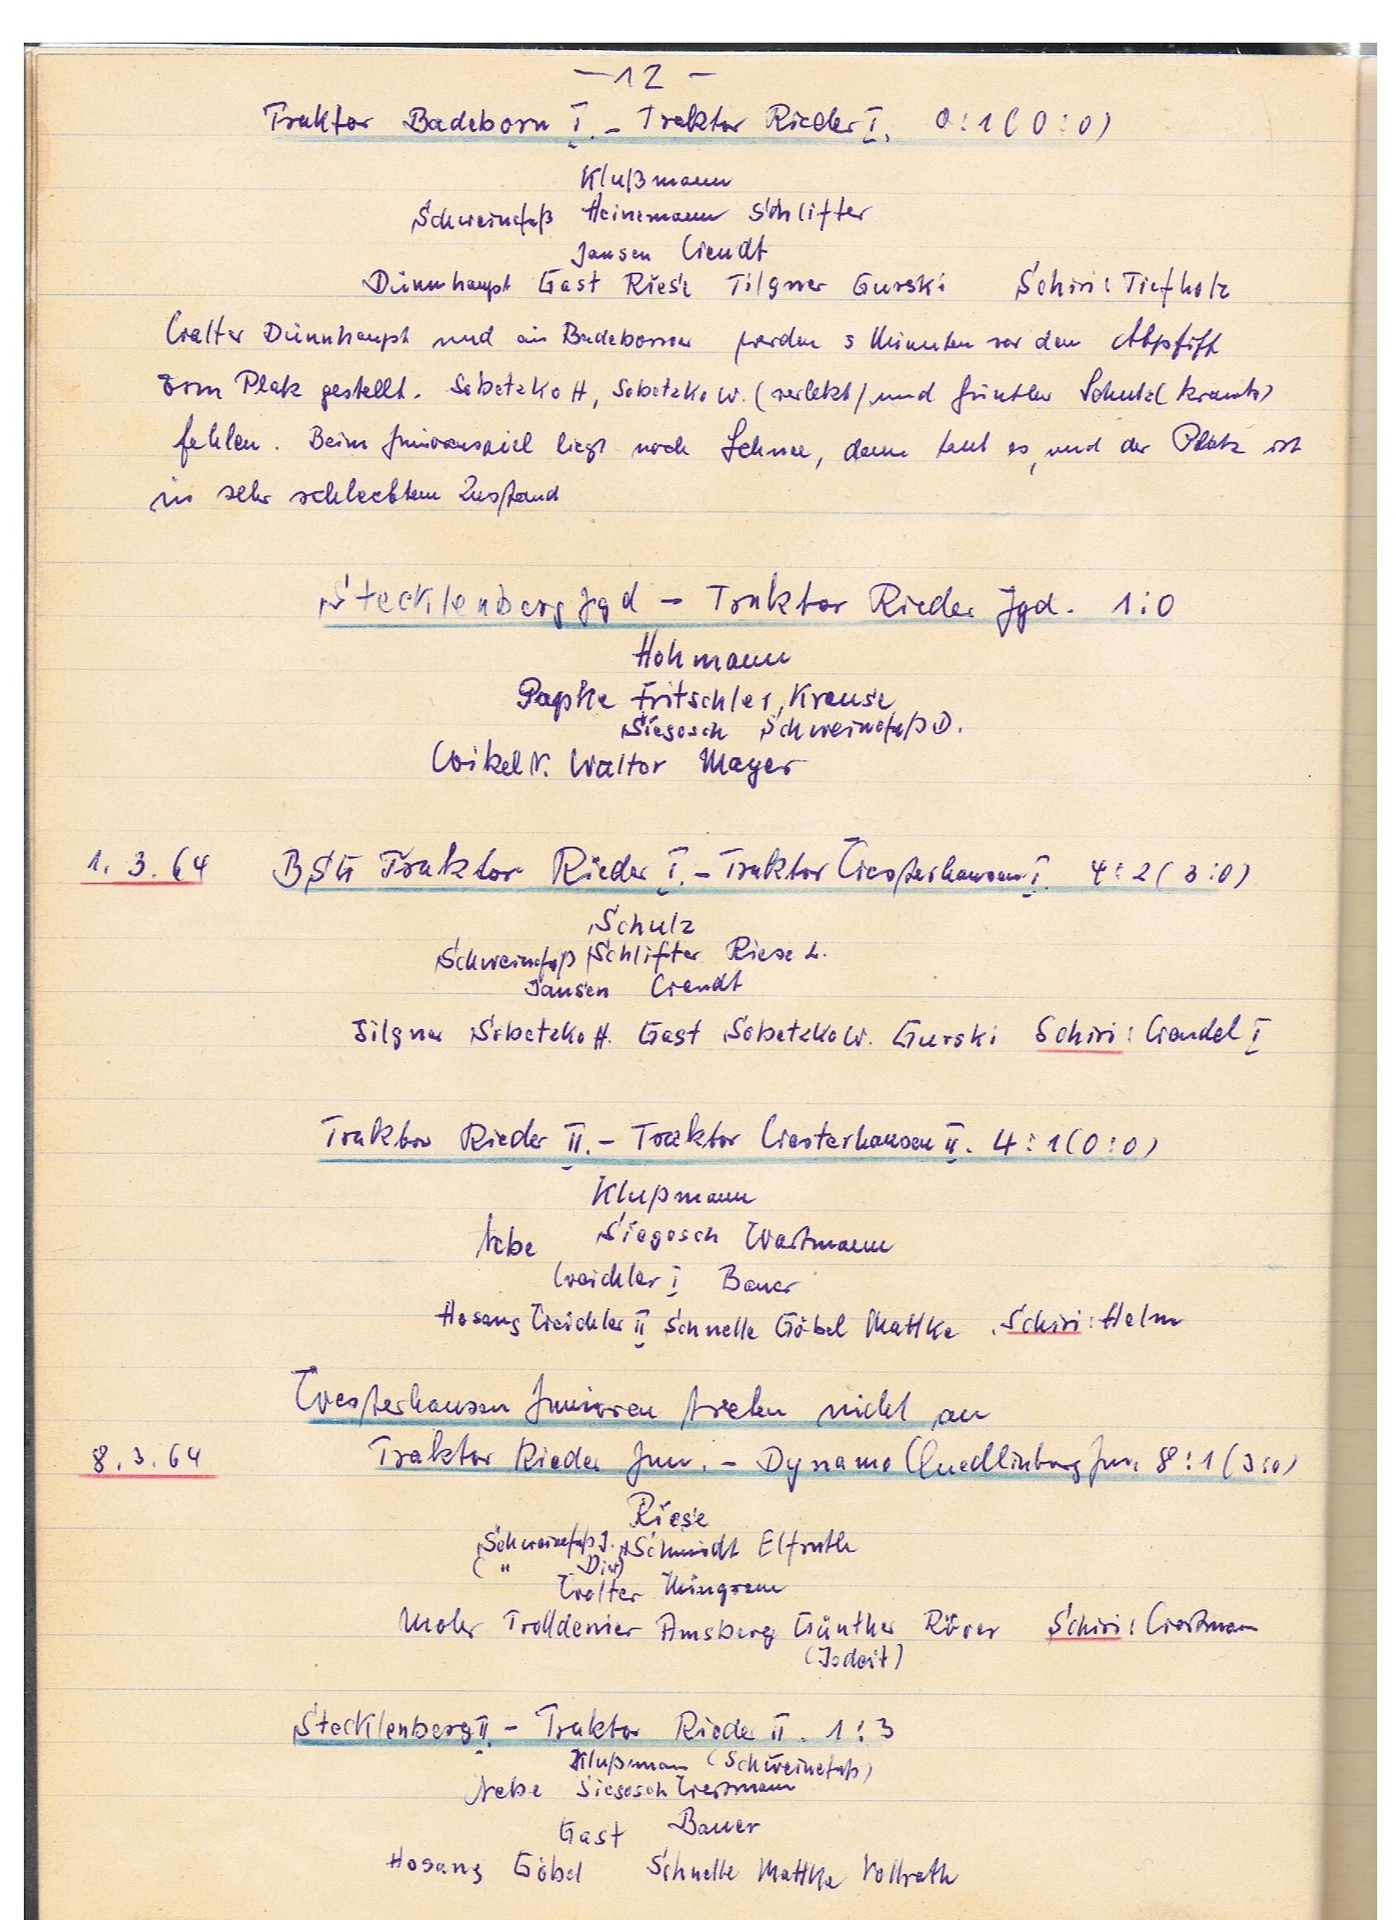 - 12 -
Traktor Badeborn I. - Traktor Rieder I. 0:1 (0:0)
Klußmann
Schweinefuß Heinemann Schlifter
Jansen Wendt
Dünnhaupt Gast Riese Tilgner Gurski Schiri: Tiefholz
Walter Dünnhaupt und ein Badeborner werden 5 Minuten vor dem Abpfiff
vom Platz gestellt. Sobetzko H, Sobetzko W. (verletzt) und Günther Schulz (krank)
fehlen. Beim Juniorenspiel liegt noch Schnee, dann taut es, und der Platz ist
in sehr schlechtem Zustand
Stecklenberg Jgd - Traktor Rieder Jgd. 1:0
Hohmann
Papke Fritschler, Krause
Siegosch Schweinefuß D.
Wikel N. Walter Mayer
1. 3. 64 BSG Traktor Rieder I. - Traktor Westerhausen I. 4:2 (3:0)
Schulz
Schweinefuß Schlifter Riese L.
Jansen Wendt
Tilgner Sobetzko H. Gast Sobetzko W. Gurski Schiri: Wendel I
Traktor Rieder II. - Traktor Westerhausen II. 4:1 (0:0)
Klußmann
Nebe Siegosch Wostmann
Weichler I Bauer
Hosang Weichler II Schnelle Göbel Mattke Schiri: Helm
Westerhausen Junioren treten nicht an
8. 3. 64 Traktor Rieder Jun. - Dynamo Quedlinburg Jun. 8:1 (3:0)
Riese
Schweinefuß J. Schmidt Elfruth
( " Die)
Walter Mingram
Mohr Trolldenier Amsberg Günther Röver Schiri: Wostmann
(Jodeit)
Stecklenberg II. - Traktor Rieder II. 1:3
Klußmann (Schweinefuß)
Nebe Siegosch Wostmann
Gast Bauer
Hosang Göbel Schnelle Mattke Vollrath